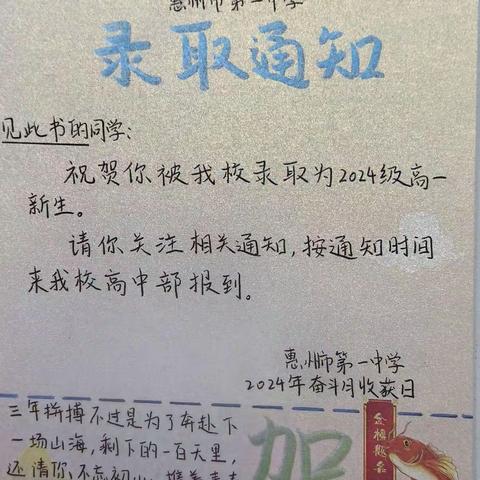 惠州市第一中学
录取通知
见此书的同学:
祝贺你被我校录取为2024级高一
新生。
请你关注相关通知,按通知时间
来我校高中部报到。
惠州市第一中学
2024年奋斗月收获日
三年拼搏不过是为了奔赴下
一场山海,剩下的一百天里,
还请你不忘初心
加
金榜题名